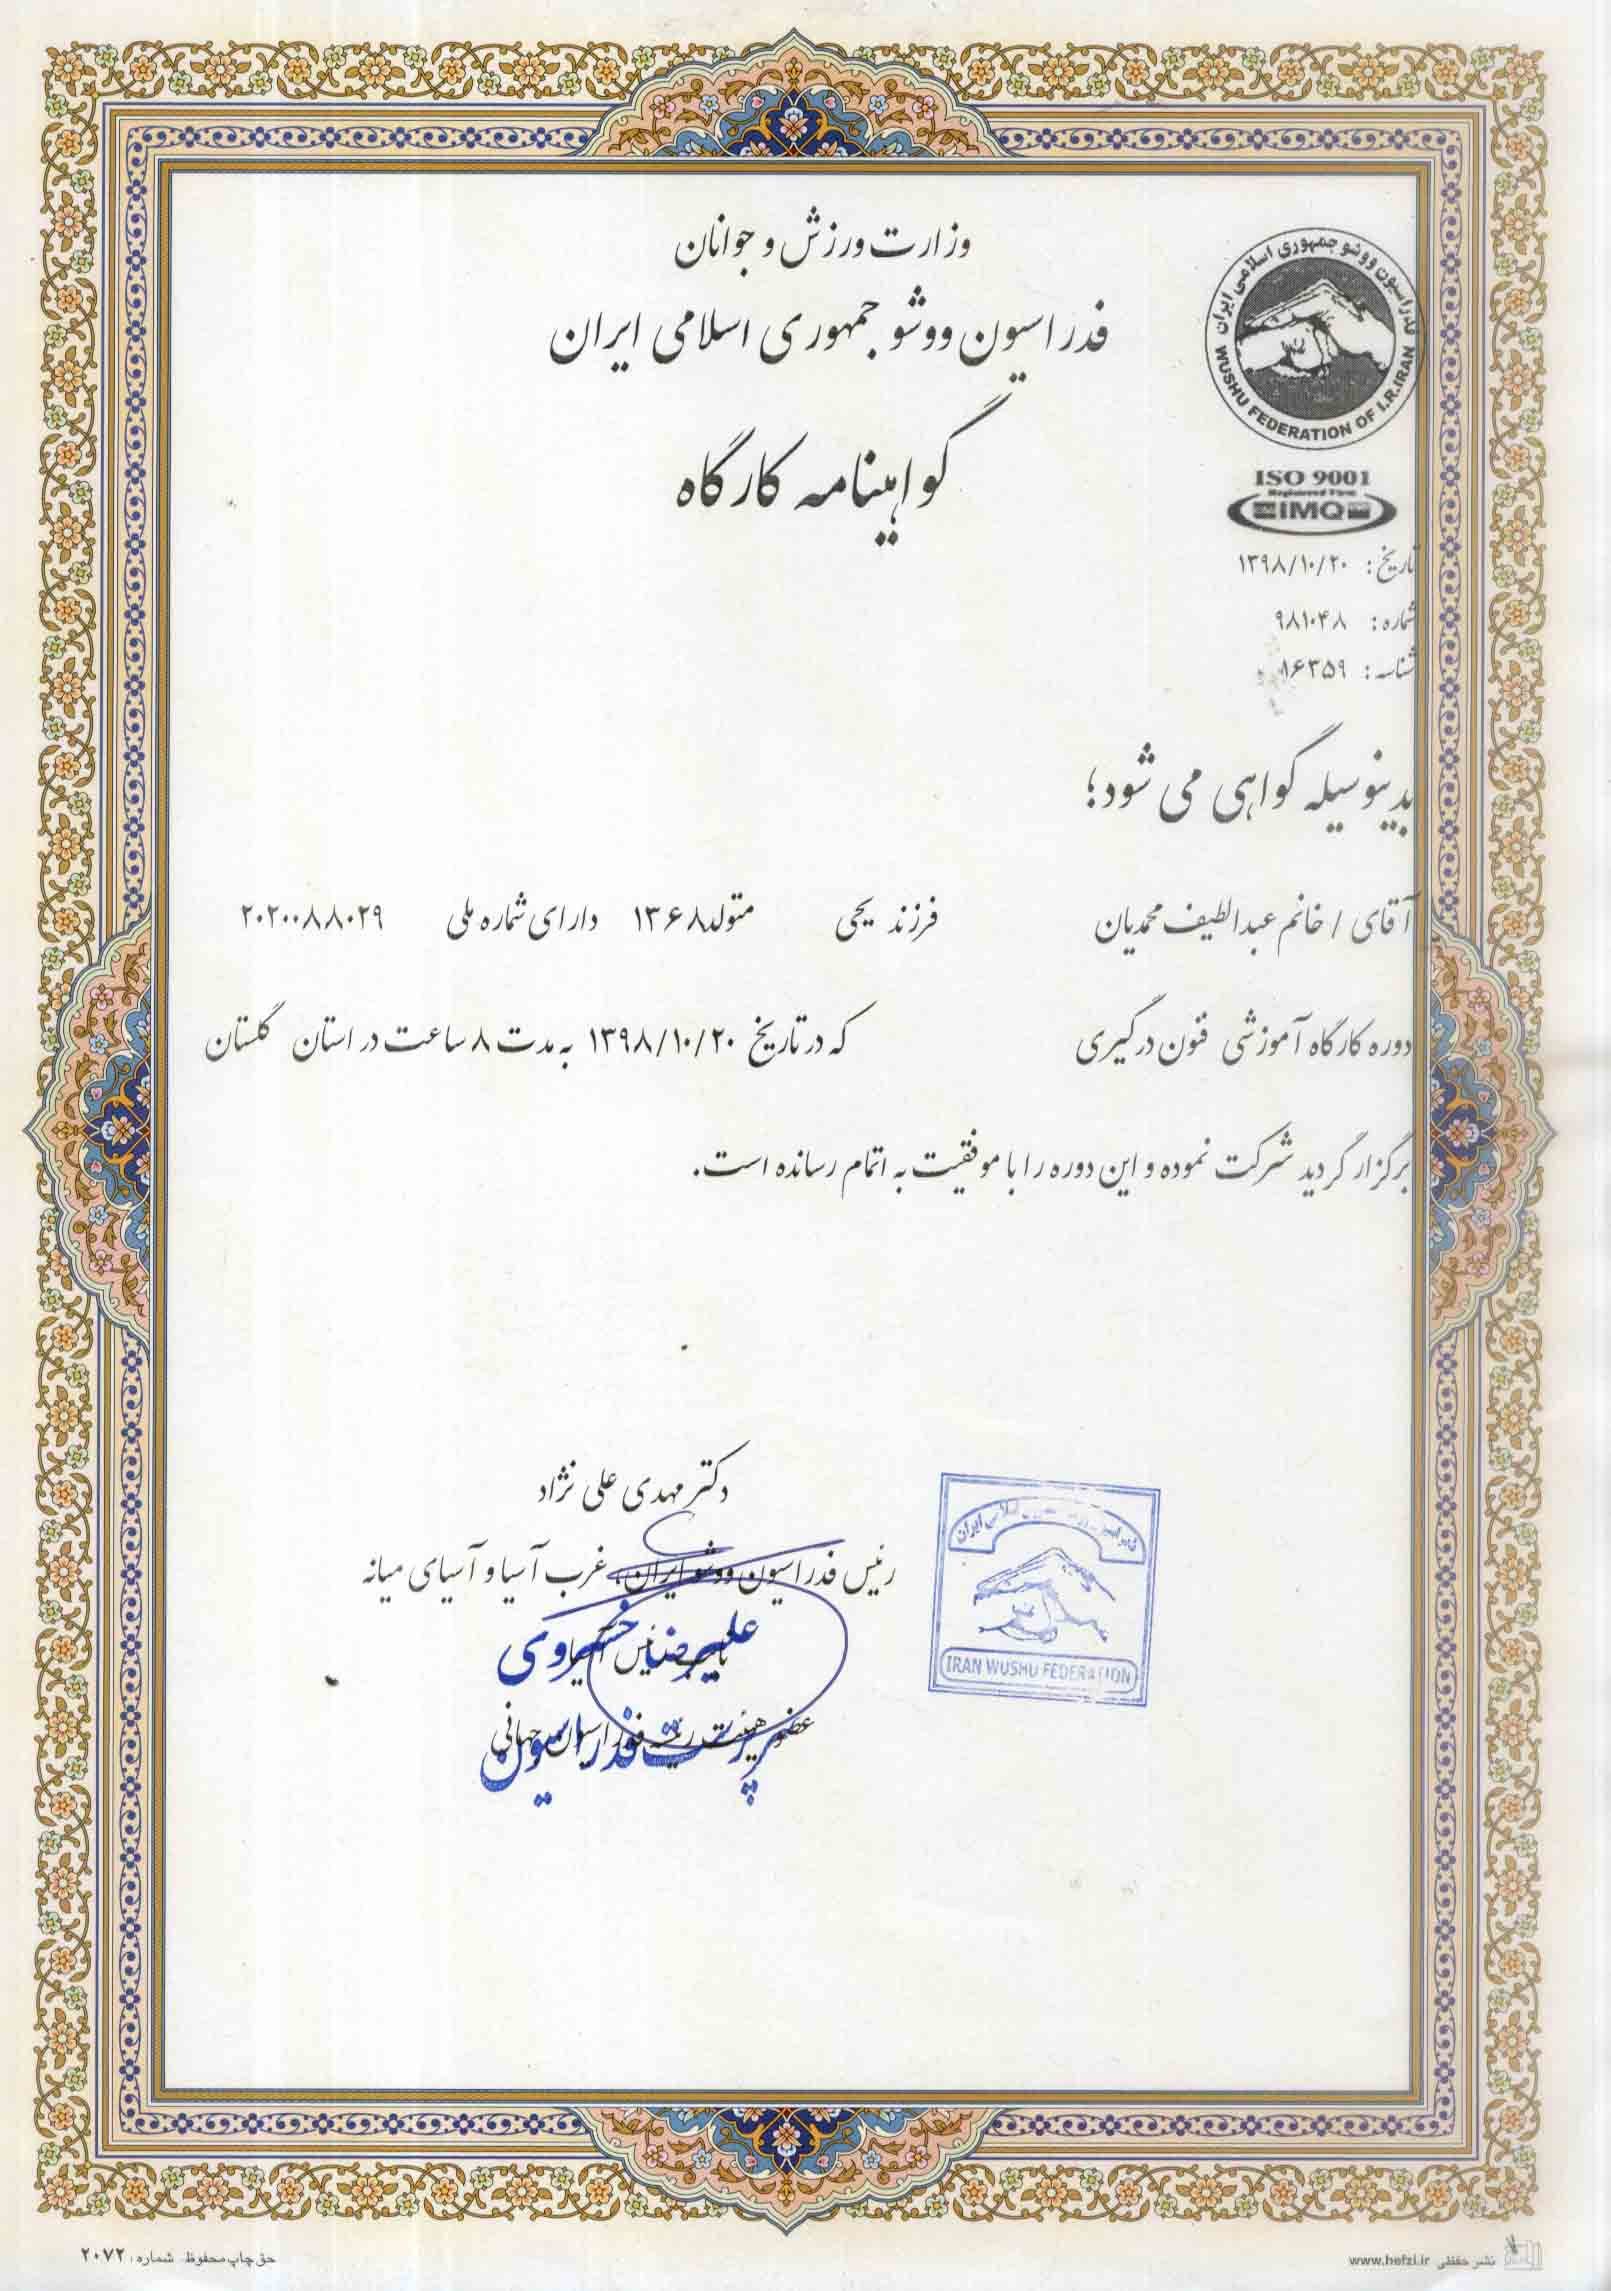 وزارت ورزش و جوانان
فدراسیون ووشو جمهوری اسلامی ایران
گواهینامه کارگاه
فدراسیون ووشو جمهوری اسلامی ایران
WUSHU FEDERATION OF I.R.IRAN
ISO 9001
Registered Firm
IMQ
تاریخ: ۱۳۹۸/۱۰/۲۰
شماره: ۹۸۱۰۴۸
شناسه: ۱۶۳۵۹
بدینوسیله گواهی می شود؛
آقای / خانم عبدالطیف محمدیان فرزند یحیی متولد ۱۳۶۸ دارای شماره ملی ۲۰۲۰۰۸۸۰۲۹
دوره کارگاه آموزشی فنون درگیری که در تاریخ ۱۳۹۸/۱۰/۲۰ به مدت ۸ ساعت در استان گلستان
برگزار گردید شرکت نموده و این دوره را با موفقیت به اتمام رسانده است.
دکتر مهدی علی نژاد
رئیس فدراسیون ووشو ایران، غرب آسیا و آسیای میانه
نایب رئیس آسیا
علیرضا خسروی
عضو هیئت رئیسه فدراسیون جهانی
سرپرست فدراسیون
اسلامی ایران
IRAN WUSHU FEDERATION
حق چاپ محفوظ شماره: ۲۰۷۲
نشر حفظی www.hefzi.ir